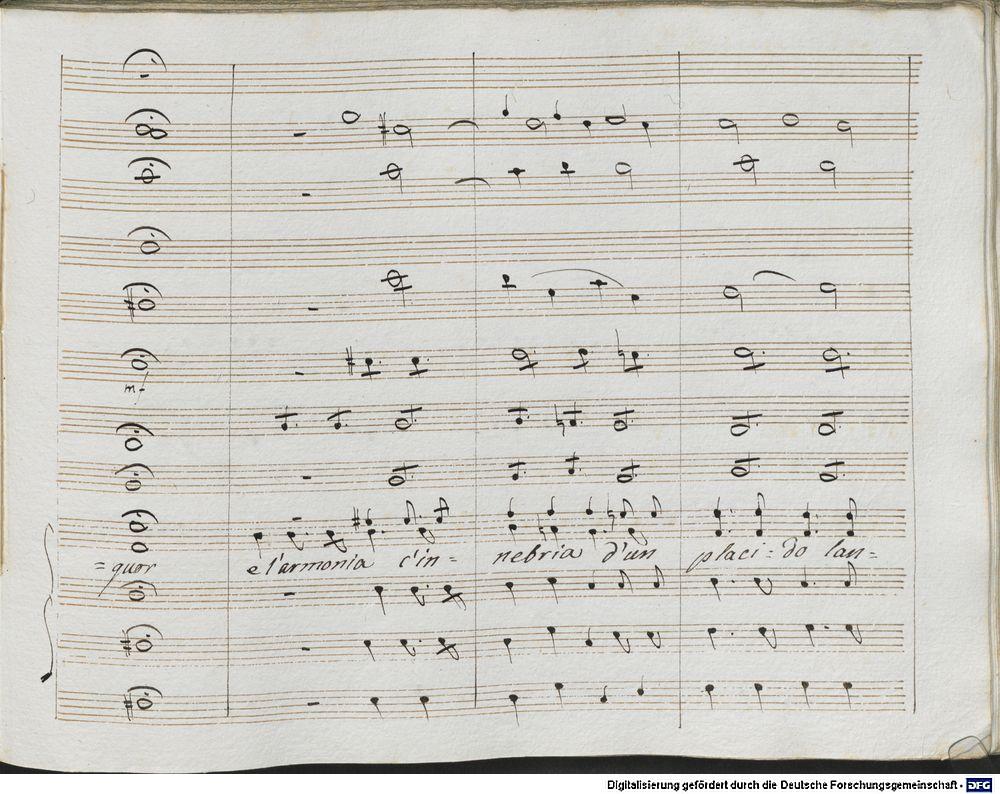 mf
=quor e l'armonia c'in= nebria d'un placi=do lan=
Digitalisierung gefördert durch die Deutsche Forschungsgemeinschaft - DFG